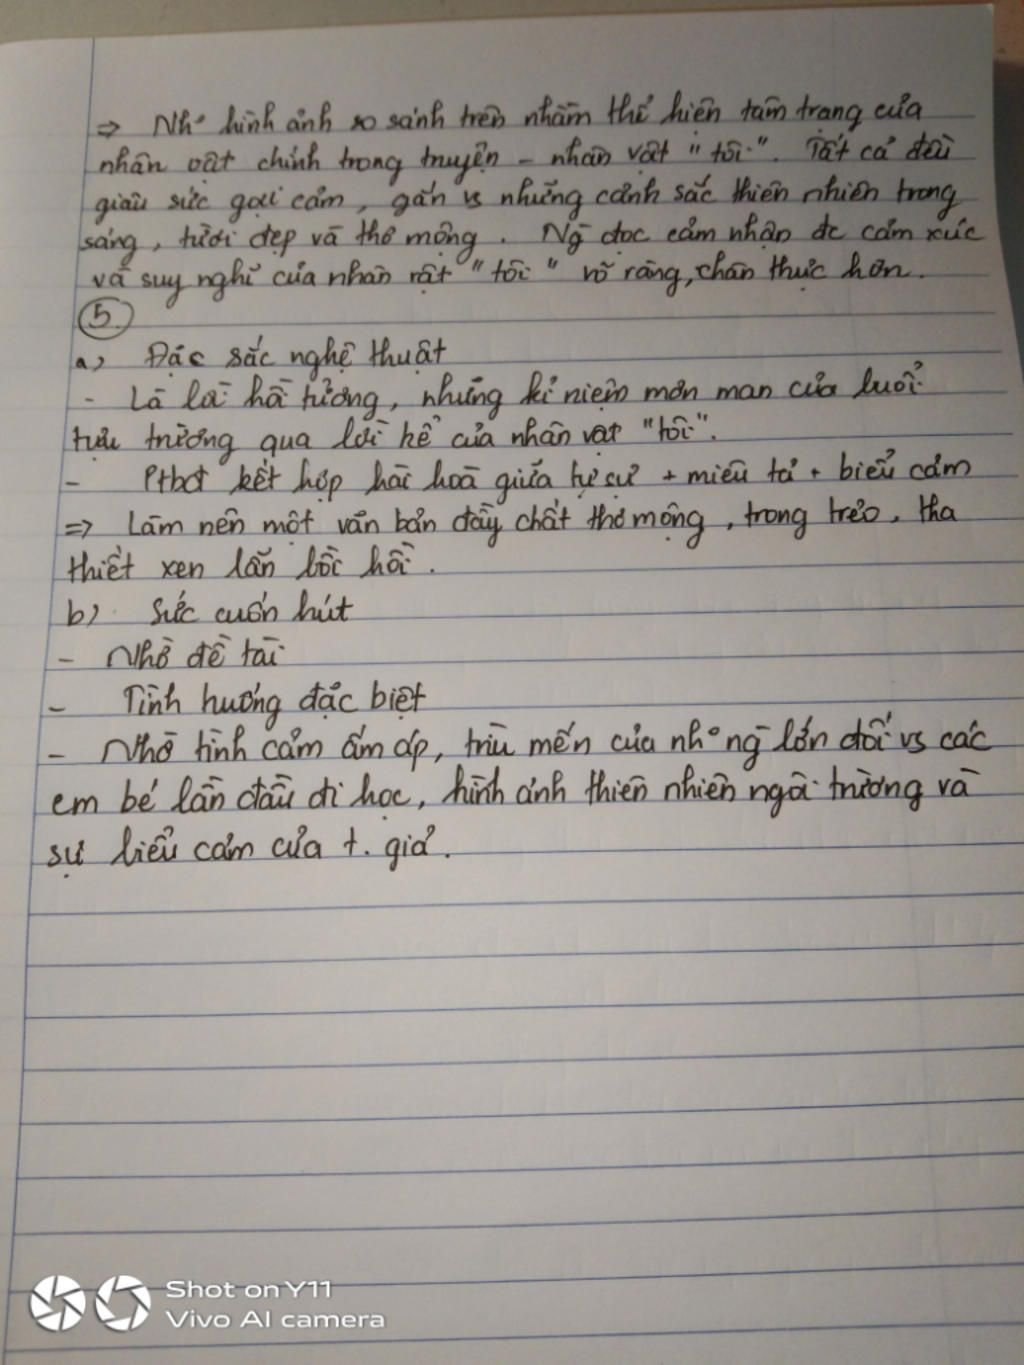 => Nh° hình ảnh so sánh trên nhằm thể hiện tâm trạng của
nhân vật chính trong truyện - nhân vật "tôi". Tất cả đều
giàu sức gợi cảm, gắn vs những cảnh sắc thiên nhiên trong
sáng, tươi đẹp và thơ mộng. Ng đọc cảm nhận đc cảm xúc
và suy nghĩ của nhân vật "tôi" rõ ràng, chân thực hơn.
5
a) Đặc sắc nghệ thuật
- Là lời hồi tưởng, những kỉ niệm mơn man của buổi
tựu trường qua lời kể của nhân vật "tôi".
- Ptbđ kết hợp hài hoà giữa tự sự + miêu tả + biểu cảm
=> Làm nên một văn bản đầy chất thơ mộng, trong trẻo, tha
thiết xen lẫn bồi hồi.
b) Sức cuốn hút
- Nhờ đề tài
- Tình huống đặc biệt
- Nhờ tình cảm ấm áp, trìu mến của nh° ng lớn đối vs các
em bé lần đầu đi học, hình ảnh thiên nhiên ngôi trường và
sự biểu cảm của t. giả.
Shot on Y11
Vivo AI camera